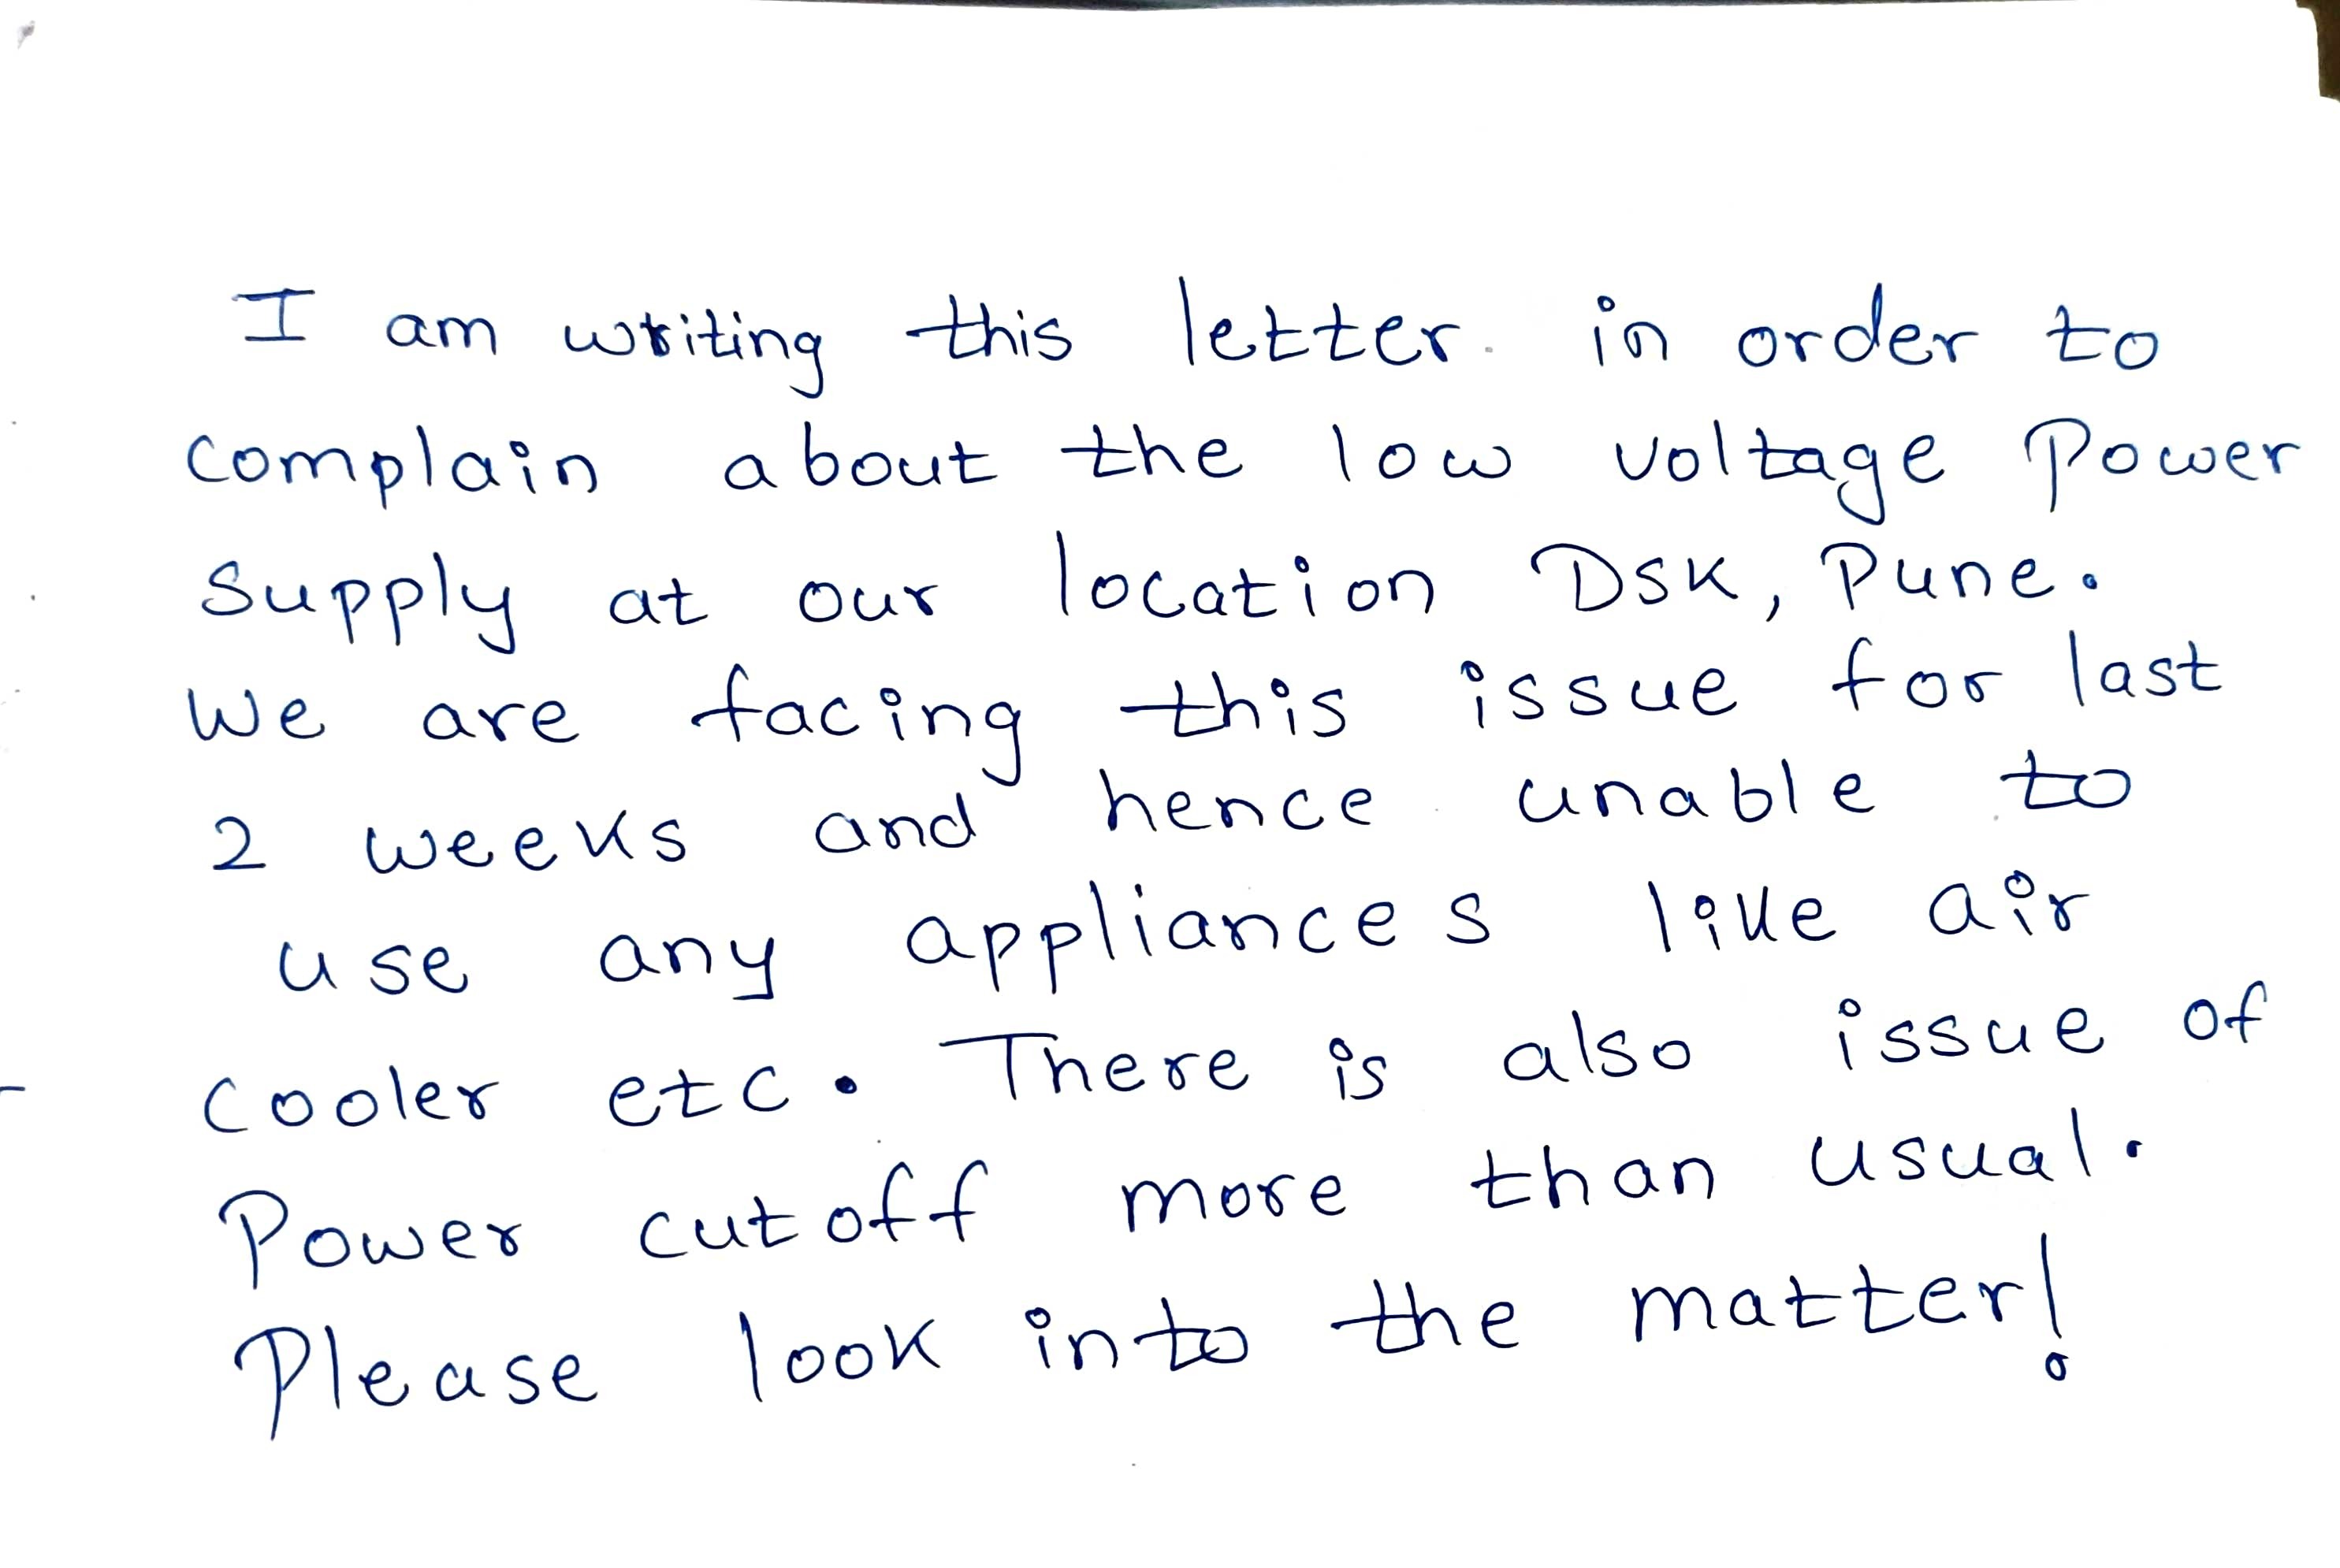 I am writing this letter in order to
complain about the low voltage power
supply at our location DSK, Pune.
We are facing this issue for last
2 weeks and hence unable to
use any appliances like air
cooler etc. There is also issue of
Power cutoff more than usual.
Please look into the matter!